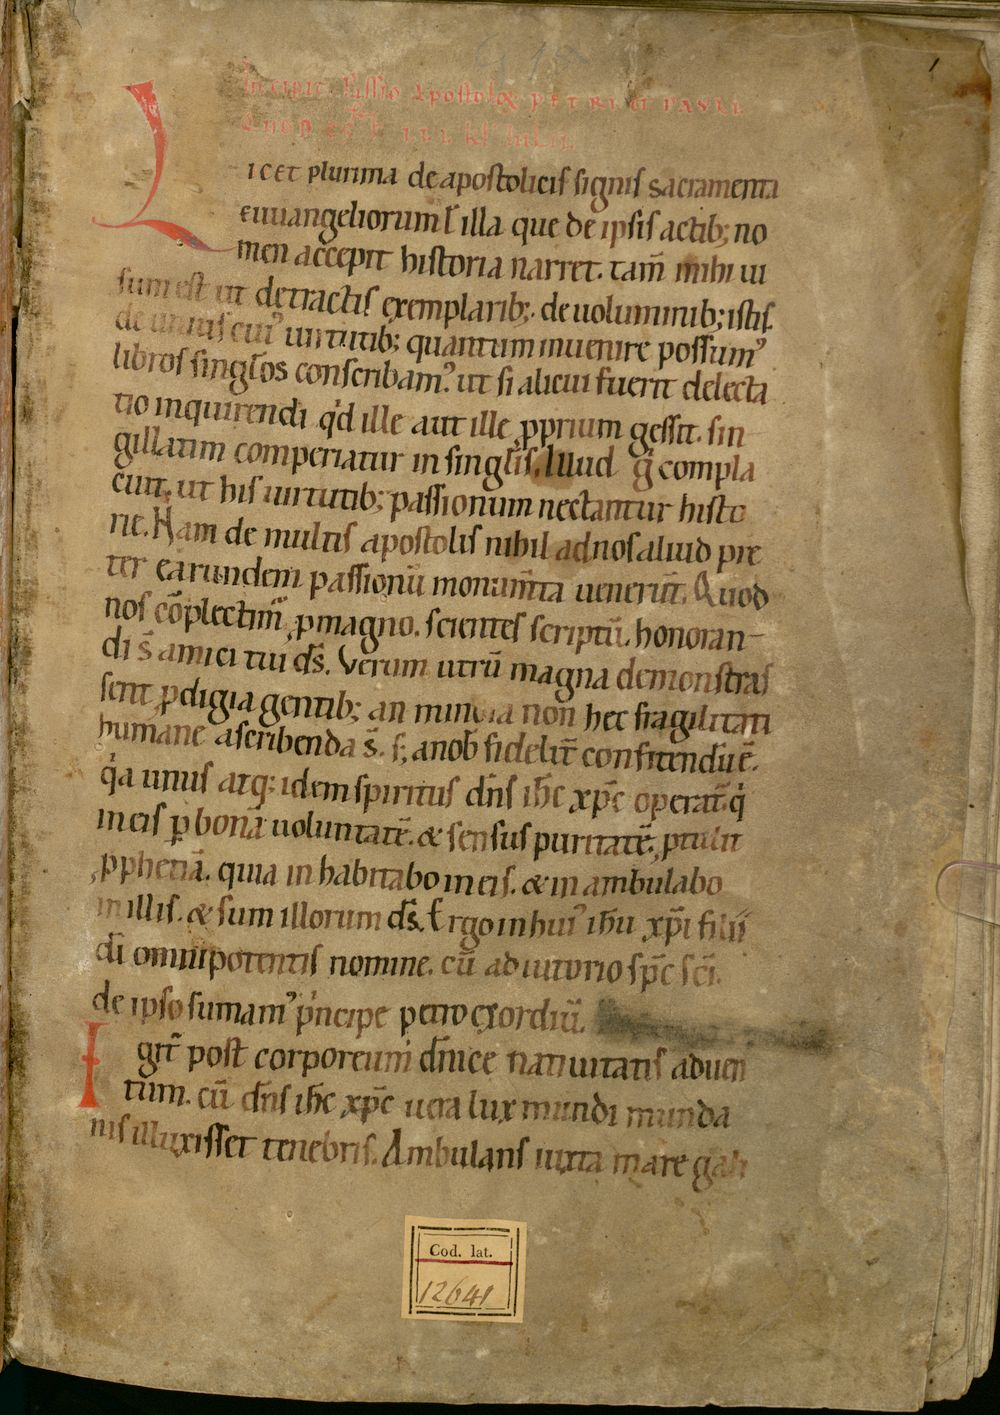 1
Incipit. Passio Apostolo℞ PETRI ET PAVLI
Quod est III kł Iulii
Licet plurima de apostolicis signis sacramenta
euuangeliorum ł illa que de ipsis actib; no
men accepit historia narret. tam̄ mihi ui
sum est ut detractis exemplarib;. de uoluminib; istis.
de unius cui' uirtutib; quantum inuenire possum'
libros singlos conscribam'. ut si alicui fuerit delecta
tio inquirendi qd ille aut ille ꝓprium gessit. sin
gillatim comperiatur in singlis. Illud g̊ compla
cuit. ut his uirtutib; passionum nectantur histo
rie. Nam de multis apostolis nihil ad nos aliud pre
ter earundem passionū monum̄ta uenerūt. Quod
nos cōplectim̄ ꝓ magno. scientes scriptū. honoran
di s̄ amici tui ds̄. Verum utrū magna demonstras
sent ꝓdigia gentib; an minora non hec fragilitati
humane ascribenda s̄. s; a nob̄ fidelit̄ confitendū ē.
qia unus atq; idem spiritus dn̄s ih̄c xp̄c operat̄ qi
in eis ꝑ bonā uoluntatē. & sensus puritatē. ptulit
ꝓphetiā. quia inhabitabo in eis. & inambulabo
in illis. & sum illorum ds̄. Ergo in hui' ih̄u xp̄i filii
dī omnipotentis nomine. cū adiutorio sp̄c sc̄i.
de ipso sumam' pincipe petro exordiū.
Igit̄ post corporeum dn̄ice natiuitatis aduen
tum. cū dn̄s ih̄c xp̄c uera lux mundi munda
nis illuxisset tenebris. Ambulans iuxta mare gali
Cod. lat.
12641